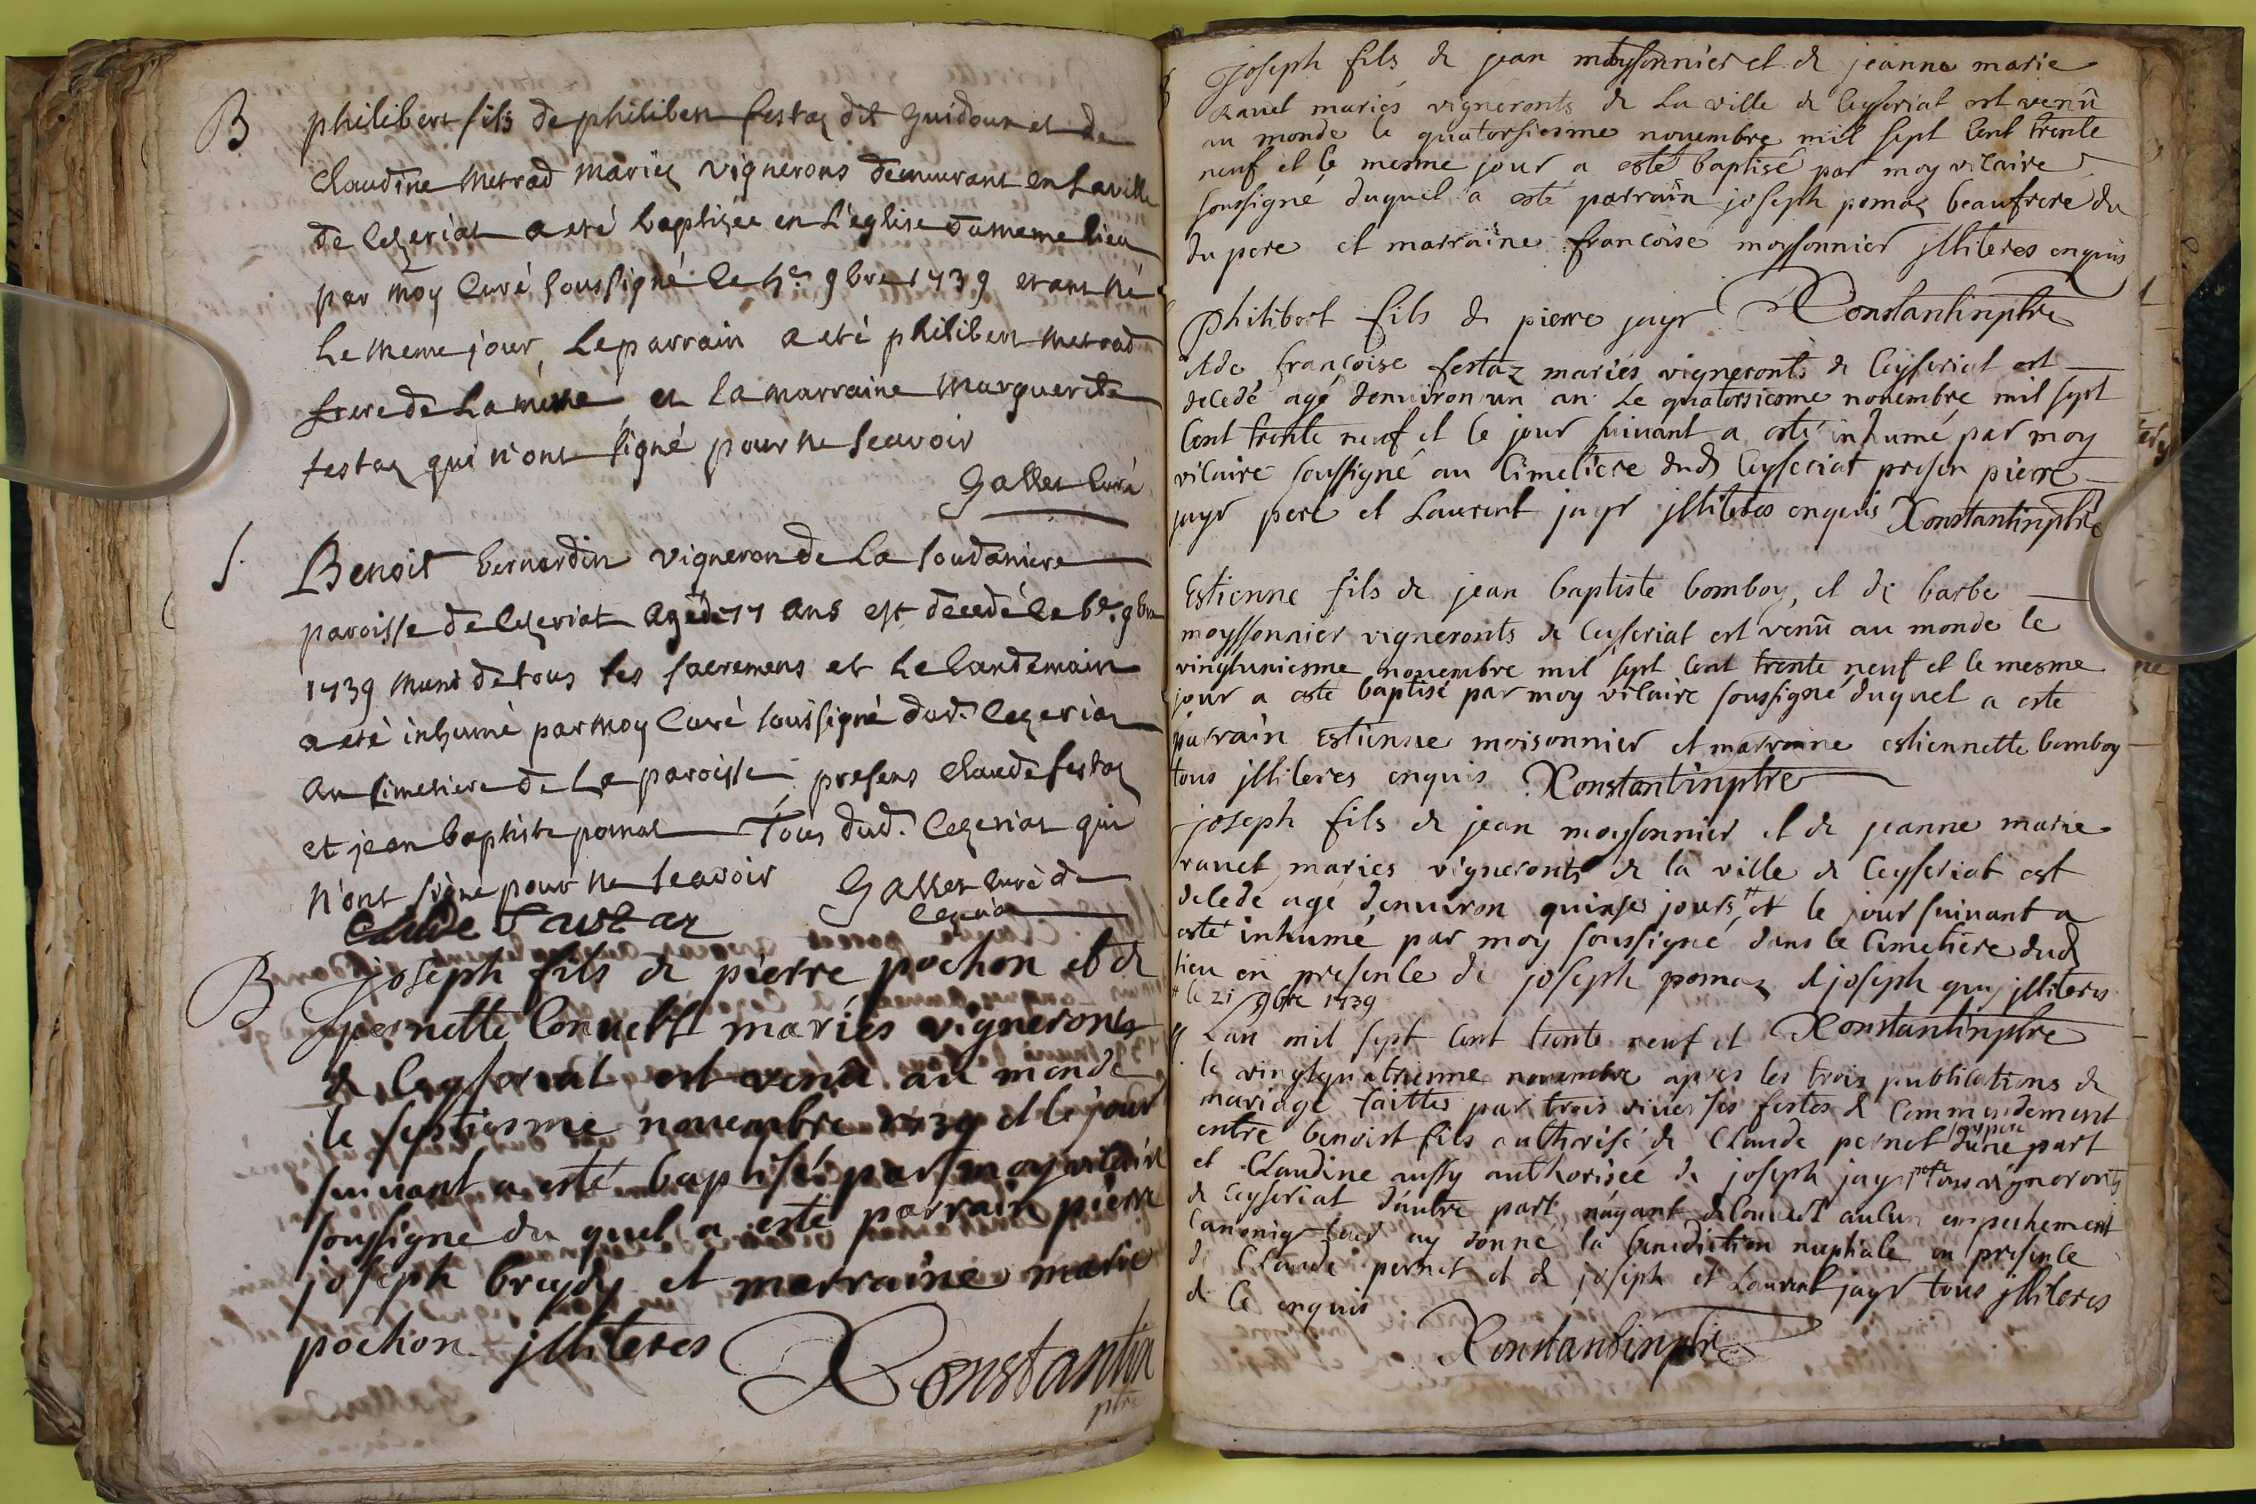 B philibert fils de philibert festaz dit guidoux et de
Claudine metrad mariéz vignerons demeurant en la ville
de Cezeriat a eté baptizée en l'église du meme lieu
par moy Curé soussigné le 4e 9bre 1739 etant né
le meme jour, le parrain a eté philibert metrad
frere de la mère et la marraine marguerite
festaz qui n'ont signé pour ne sçavoir
Gallet curé
S. Benoit bernardin vigneron de la soudaniere
paroisse de Cezeriat agé de 77 ans est decedé le 6e. 9bre
1739 muni de tous les sacremens et le landemain
a eté inhumé par moy Curé soussigné dud. Cezeriat
au simetiere de la paroisse presens Claude festaz
et jean baptiste pomat Tous dud. Cezeriat qui
n'ont signé pour ne sçavoir Gallet curé de
Cezeriat
Claude
B joseph fils de pierre pochon et de
pernette Convert mariés vigneronts
de Ceyseriat est venû au monde
le septiesme novembre 1739 et le jour
suivant a esté baptisé par moy vicaire
soussigne du quel a esté parrain pierre
joseph breydy et marraine marie
pochon jlliteres Constantin
ptre
joseph fils de jean moyssonnier et de jeanne marie
ravet mariés vigneronts de la ville de Ceyseriat est venû
au monde le quatorsiesme novembre mil sept Cent trente
neuf et le mesme jour a esté baptisé par moy vicaire
soussigné duquel a esté parrain joseph pomaz beaufrere du
du pere et marraine francoise moysonnier jlliteres enquis
Philibert fils de pierre jayr Constantin ptre
et de françoise festaz mariés vigneronts de Ceyseriat est
decedé agé denviron un an le quatorsiesme novembre mil sept
Cent trente neuf et le jour suivant a esté inhumé par moy
vicaire soussigné au Cimetiere dud Ceyseriat presen pierre
jayr pere et Laurent jayr jlliteres enquis Constantin ptre
Estienne fils de jean baptiste bomboy, et de barbe
moyssonnier vigneronts de Ceyseriat est venû au monde le
vingtuniesme novembre mil sept Cent trente neuf et le mesme
jour a esté baptisé par moy vicaire soussigné duquel a esté
parrain Estienne moisonnier et marraine estiennette bomboy
tous jlliteres enquis Constantin ptre
joseph fils de jean moysonnier et de jeanne marie
ravet mariés vigneronts de la ville de Ceyseriat est
decedé agé denviron quinse jours # et le jour suivant a
esté inhumé par moy soussigné dans le Cimetiere dud
lieu en presence de joseph pomaz et joseph guy jlliteres
# le 21 9bre 1739
Lan mil sept Cent trente neuf et Constantin ptre
le vingtquatriesme novembre apres les trois publications de
mariage faittes par trois diverses festes de Commendement
entre benoist fils authorisé de Claude pernet son pere dune part
et Claudine aussy authorisée de joseph jayr tous vigneronts
de Ceyseriat dautre part, nayant decouvert aucun empechement
Canoniq leur ay donné la benediction nuptiale en presence
de Claude pernet et de joseph et Laurent jayr tous jlliteres
de Ce enquis
Constantin ptre